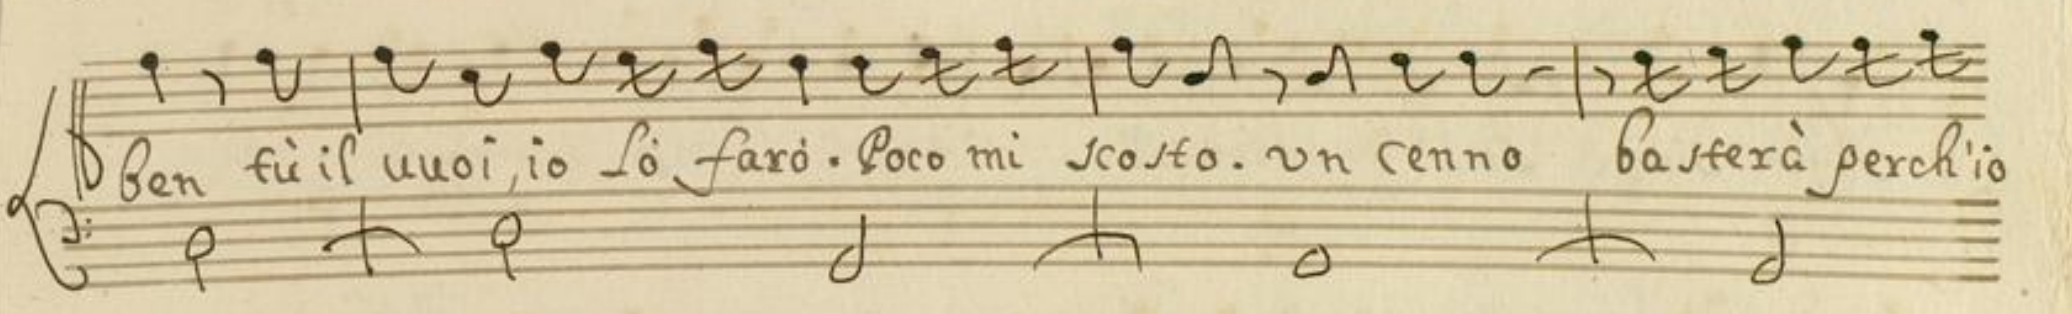 ben tù il uuoi, io lò farò. Poco mi scosto. vn cenno basterà perch'io